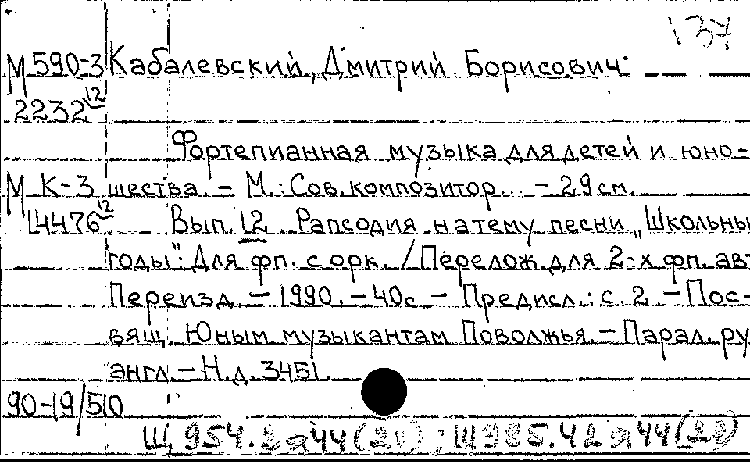 137
М 590-3 Кабалевский, Дмитрий Борисович.
2232 12
Фортепианная музыка для детей и юно-
М К-3 шества. - М.: Сов. композитор. - 29 см.
14476 12 Вып. 12. Рапсодия на тему песни „Школьны
годы": Для фп. с орк. / Перелож. для 2-х фп. авт
Переизд. - 1990. - 40 с. - Предисл.: с. 2 - Пос-
вящ. Юным музыкантам Поволжья. - Парал. ру
англ. - Н.д. 3451.
90-19/510
Щ 954.2 я44 (2 ) ; Щ 985.42 я44 (2 )